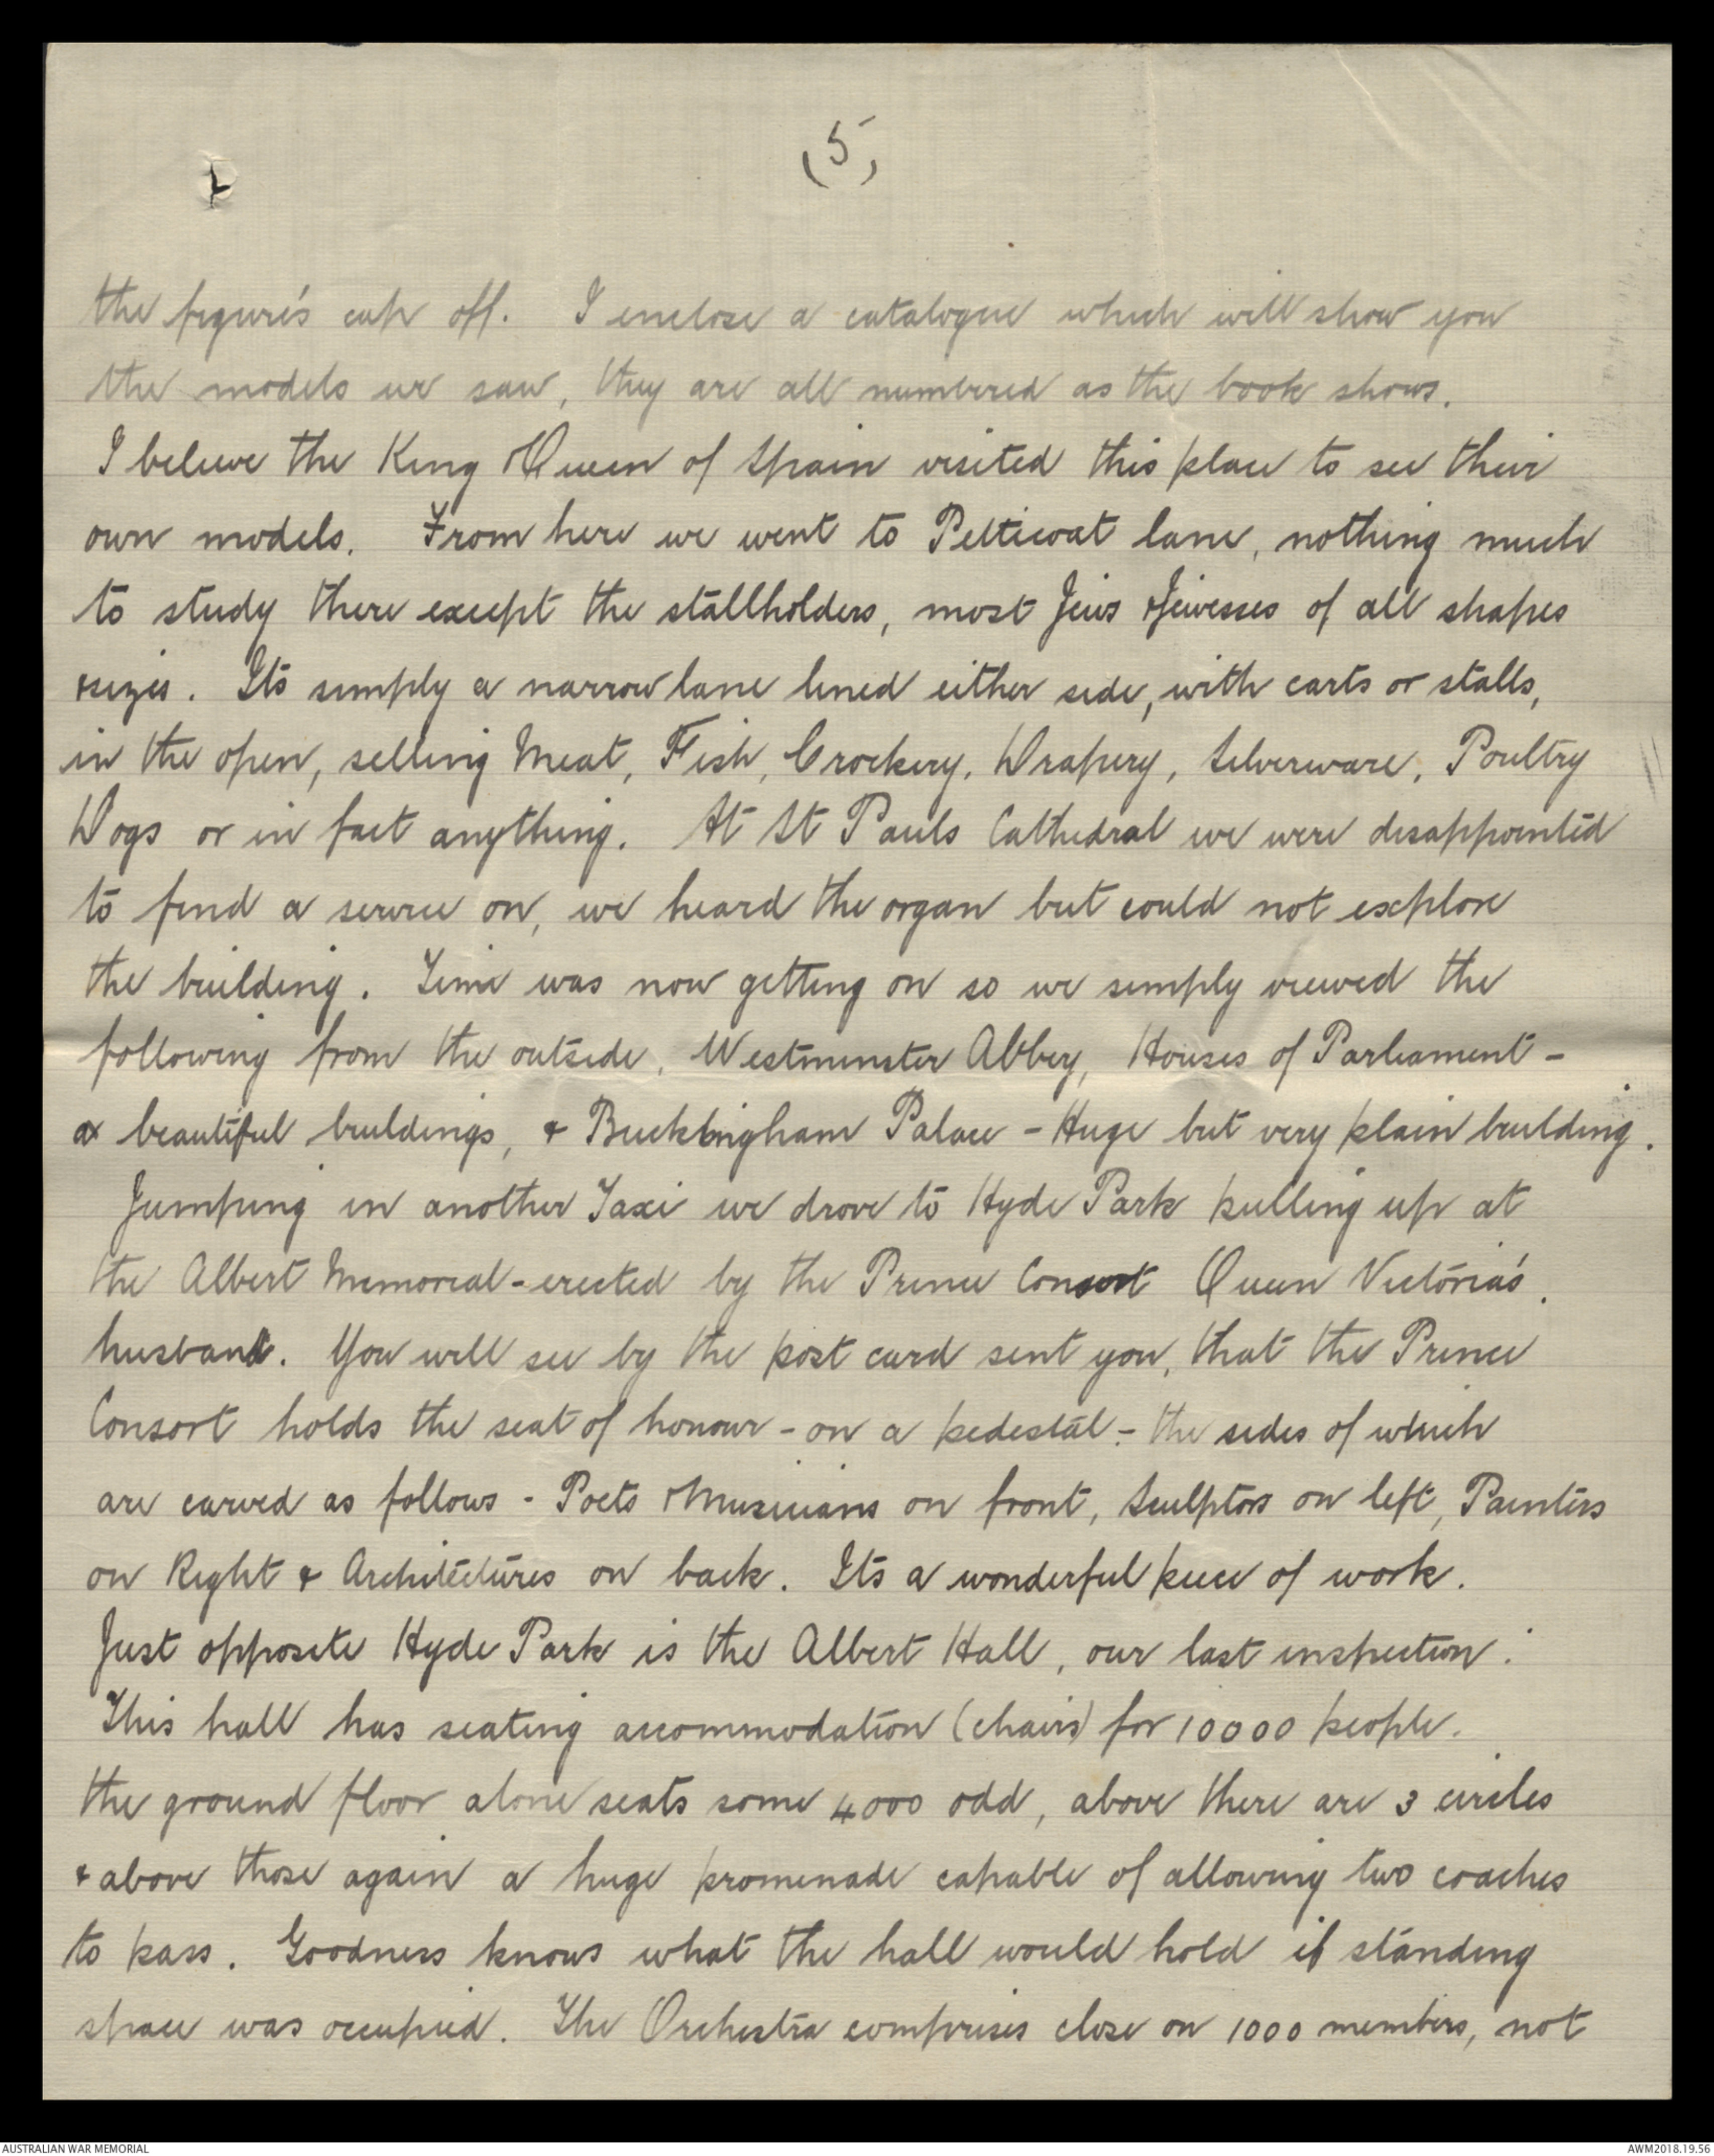 (5)
the figure's cap off. I enclose a catalogue which will show you
the models we saw, they are all numbered as the book shows.
I believe the King & Queen of Spain visited this place to see their
own models. From here we went to Petticoat lane, nothing much
to study there except the stallholders, most Jews & Jewesses of all shapes
& sizes. Its simply a narrow lane lined either side, with carts or stalls,
in the open, selling Meat, Fish, Crockery, Drapery, Silverware, Poultry
Dogs or in fact anything. At St Pauls Cathedral we were disappointed
to find a service on, we heard the organ but could not explore
the building. Time was now getting on so we simply viewed the
following from the outside, Westminster Abbey, Houses of Parliament -
a beautiful buildings, & Buckbingham Palace - Huge but very plain building.
Jumping in another Taxi we drove to Hyde Park pulling up at
the Albert Memorial - erected by the Prince Consort Queen Victoria's.
husband. You will see by the post card sent you, that the Prince
Consort holds the seat of honour - on a pedestal - the sides of which
are carved as follows - Poets & Musicians on front, Sculptors on left, Painters
on Right & Architectures on back. Its a wonderful piece of work.
Just opposite Hyde Park is the Albert Hall, our last inspection.
This hall has seating accommodation (chairs) for 10000 people.
the ground floor alone seats some 4000 odd, above there are 3 circles
& above those again a huge promenade capable of allowing two coaches
to pass. Goodness knows what the hall would hold if standing
space was occupied. The Orchestra comprises close on 1000 members, not
AUSTRALIAN WAR MEMORIAL
AWM2018.19.56